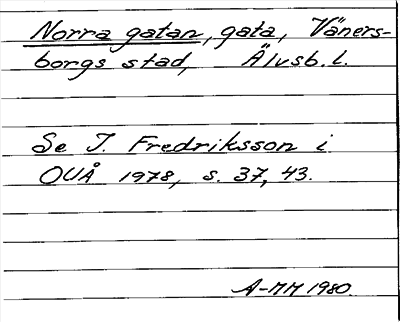 Norra gatan, gata, Väners-
borgs stad, Älvsb. l.
Se I. Fredriksson i
OUÅ 1978, s. 37, 43.
A-MM 1980.